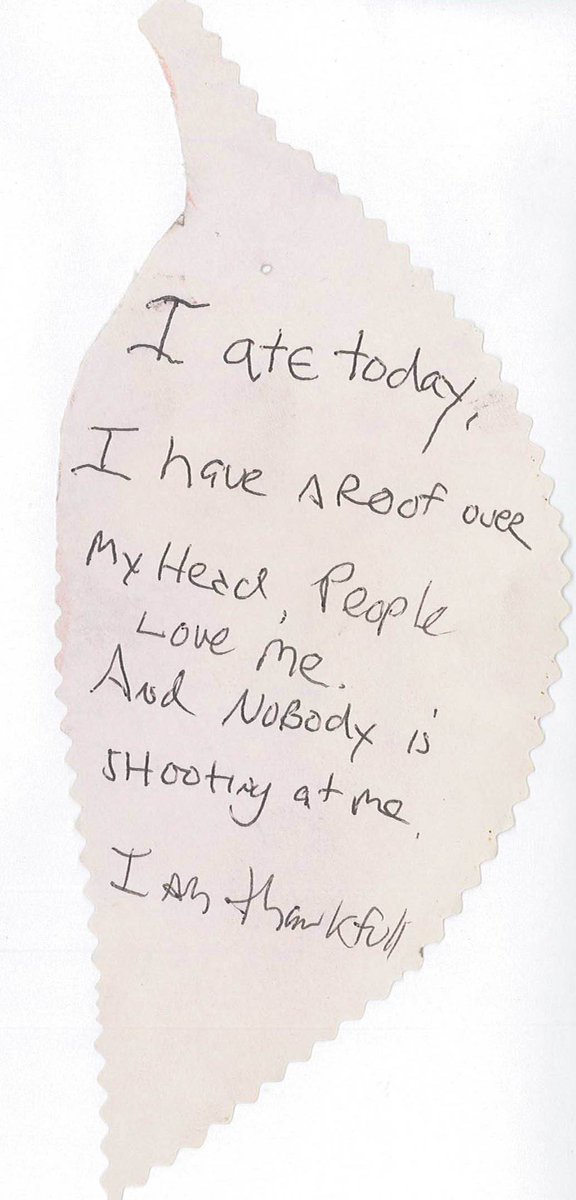 I ate today,
I have A Roof over
My Head, People
Love me.
And NoBody is
SHooting at me.
I am thankfull